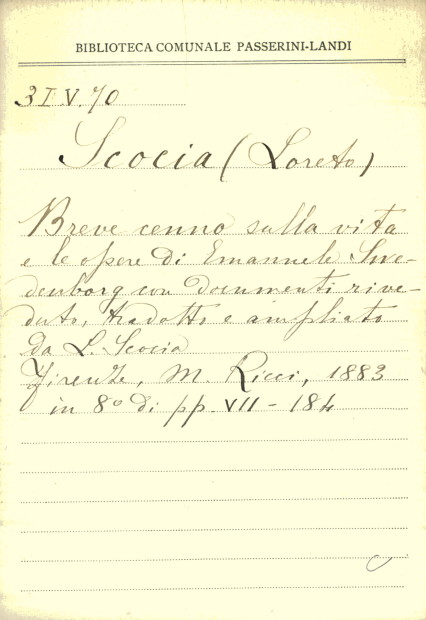 BIBLIOTECA COMUNALE PASSERINI-LANDI
3I.V.70
Scocia (Loreto)
Breve cenno sulla vita
e le opere di Emanuele Swe-
denborg con documenti rive-
duto, tradotto e ampliato
da L. Scocia
Firenze, M. Ricci, 1883
in 8º di pp. VII - 184